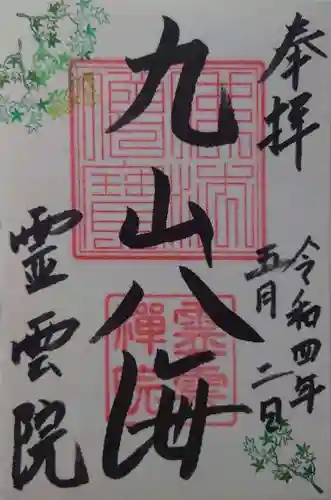 奉拝
令和四年
五月二日
九山八海
霊雲院
佛法僧寶
霊雲禅院